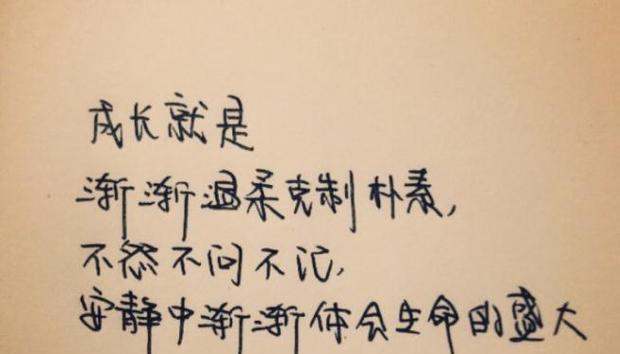 成长就是
渐渐温柔克制朴素,
不怨不问不记,
安静中渐渐体会生命的盛大